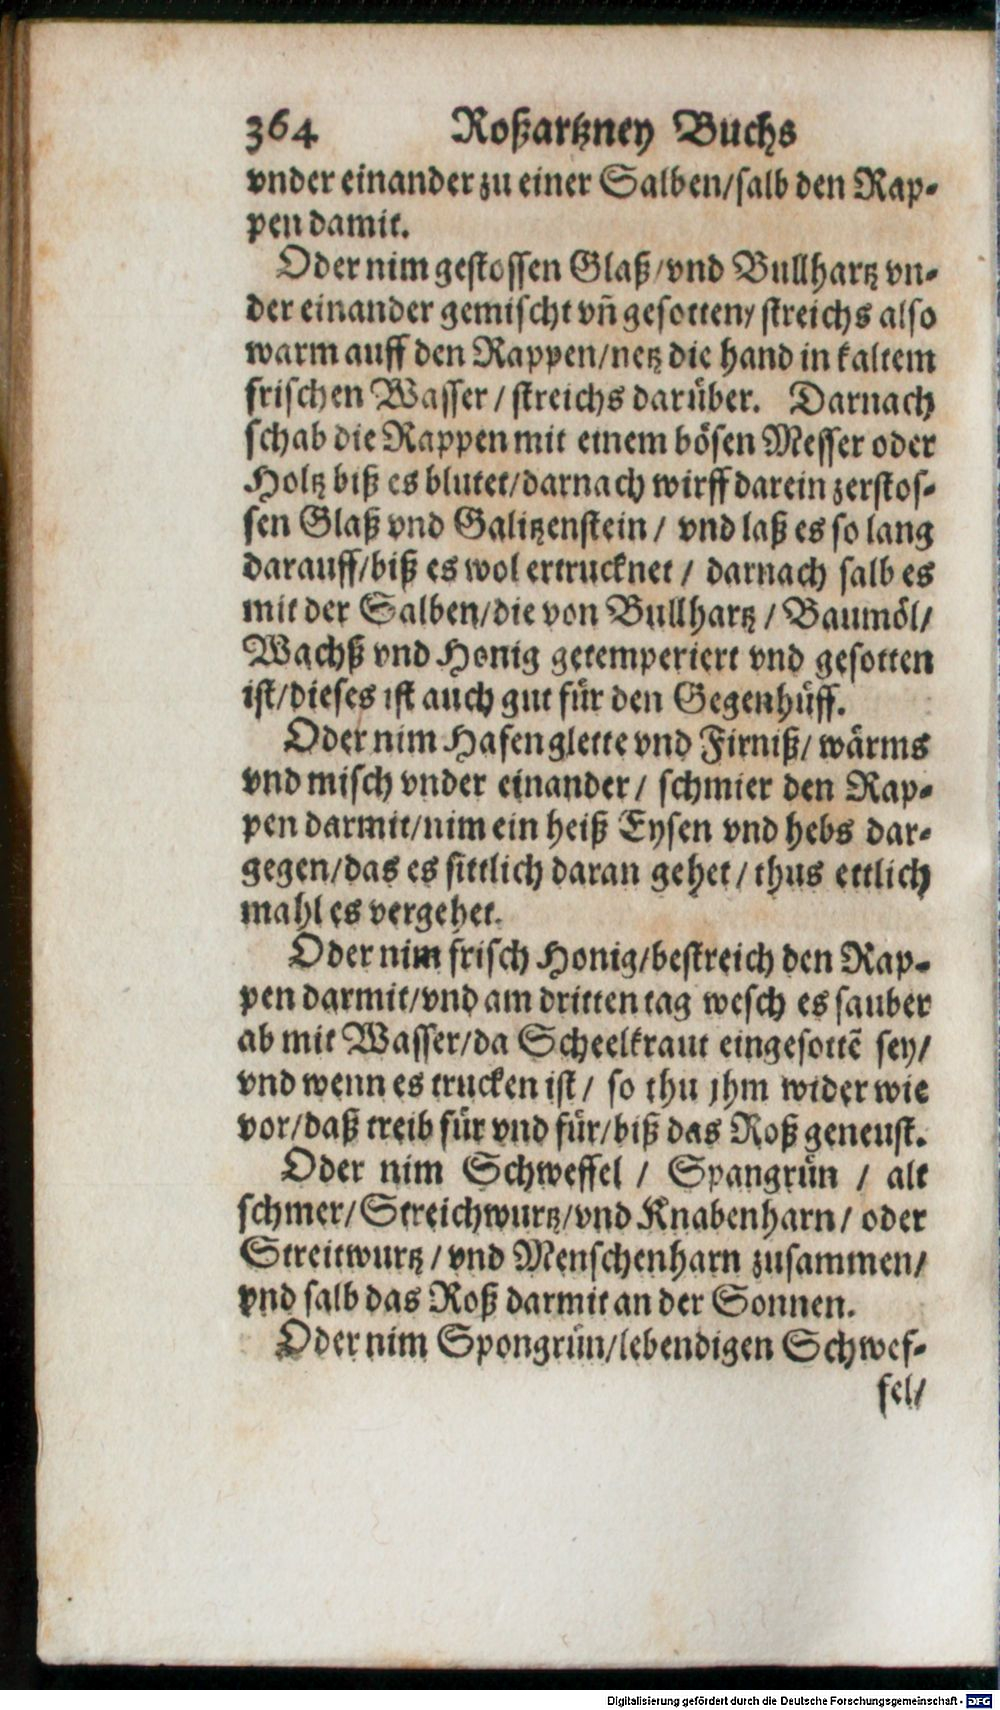 364 Roßartzney Buchs
vnder einander zu einer Salben/salb den Rap-
pen damit.
Oder nim gestossen Glaß/vnd Bullhartz vn-
der einander gemischt vn̄ gesotten/ streichs also
warm auff den Rappen/netz die hand in kaltem
frischen Wasser/ streichs darüber. Darnach
schab die Rappen mit einem bösen Messer oder
Holtz biß es blutet/darnach wirff darein zerstos-
sen Glaß vnd Galitzenstein/ vnd laß es so lang
darauff/biß es wol ertrucknet/ darnach salb es
mit der Salben/die von Bullhartz/ Baumöl/
Wachß vnd Honig getemperiert vnd gesotten
ist/dieses ist auch gut für den Gegenhüff.
Oder nim Hafenglette vnd Firniß/ wärms
vnd misch vnder einander/ schmier den Rap-
pen darmit/nim ein heiß Eysen vnd hebs dar-
gegen/das es sittlich daran gehet/ thus ettlich
mahl es vergehet.
Oder nim frisch Honig/bestreich den Rap-
pen darmit/vnd am dritten tag wesch es sauber
ab mit Wasser/da Scheelkraut eingesottē sey/
vnd wenn es trucken ist/ so thu jhm wider wie
vor/daß treib für vnd für/biß das Roß geneust.
Oder nim Schweffel/ Spangrün/ alt
schmer/Streichwurtz/vnd Knabenharn/ oder
Streitwurtz/vnd Menschenharn zusammen/
vnd salb das Roß darmit an der Sonnen.
Oder nim Spongrün/lebendigen Schwef-
fel/
Digitalisierung gefördert durch die Deutsche Forschungsgemeinschaft - DFG